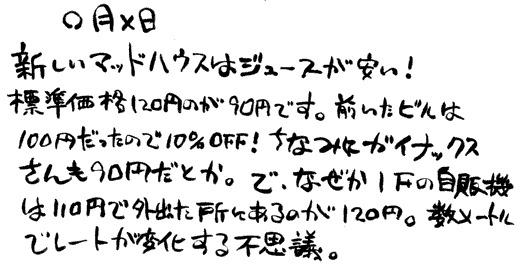 ○月×日
新しいマッドハウスはジュースが安い!
標準価格120円のが90円です。前いたビルは
100円だったので10%OFF! ちなみにガイナックス
さんも90円だとか。で、なぜか1Fの自販機
は110円で外出た所にあるのが120円。数メートル
でレートが変化する不思議。